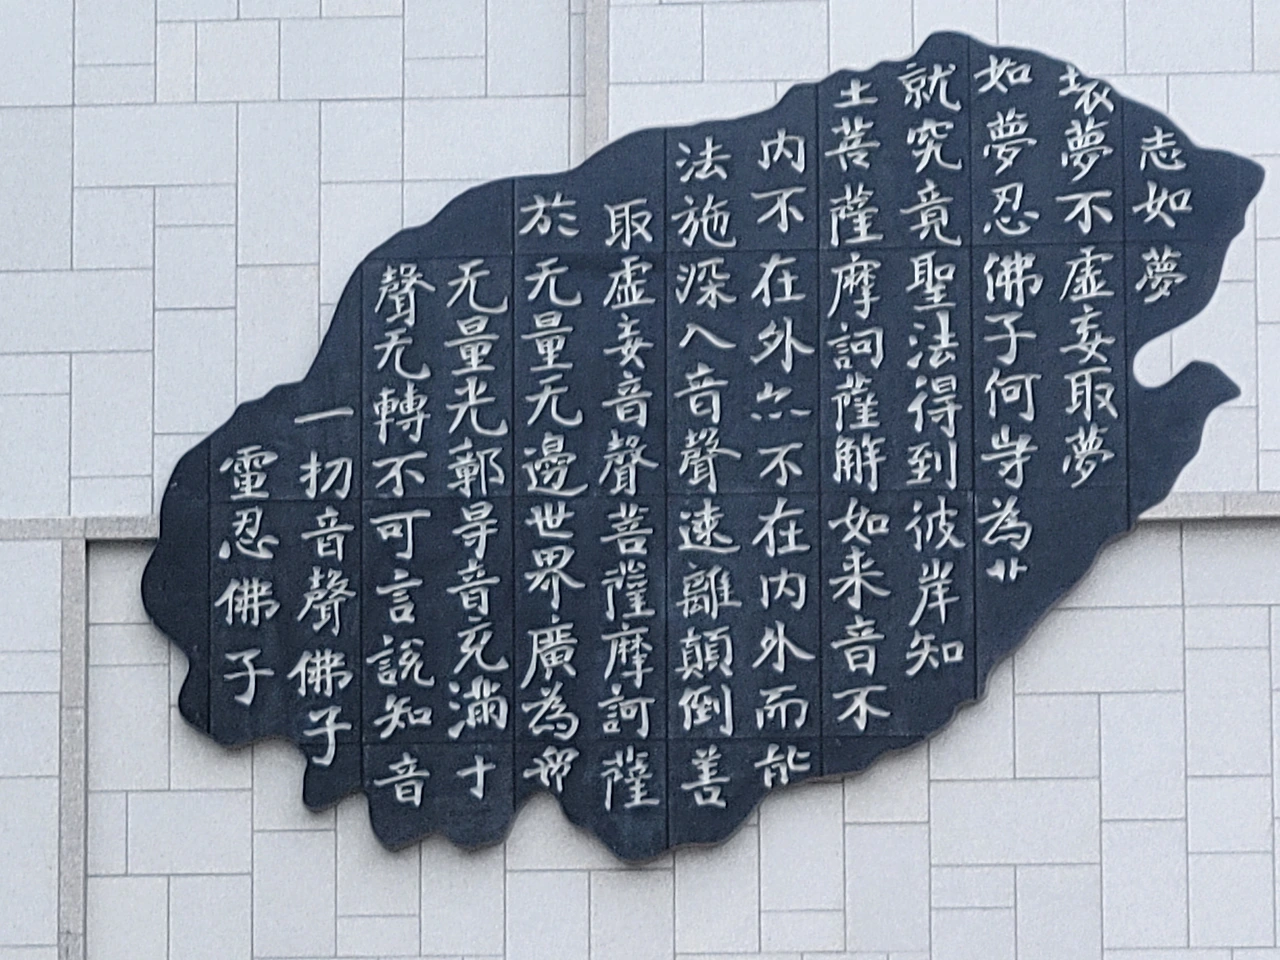 志如夢
壊夢不虚妄取夢
如夢忍佛子何等為
就究竟聖法得到彼岸知
土菩薩摩訶薩解如来音不
内不在外亦不在内外而能
法施深入音聲速離顛倒善
取虚妄音聲菩薩摩訶薩
於无量无邊世界廣為
无量光郭㝵音充滿十
聲无轉不可言說知音
一切音聲佛子
電忍佛子